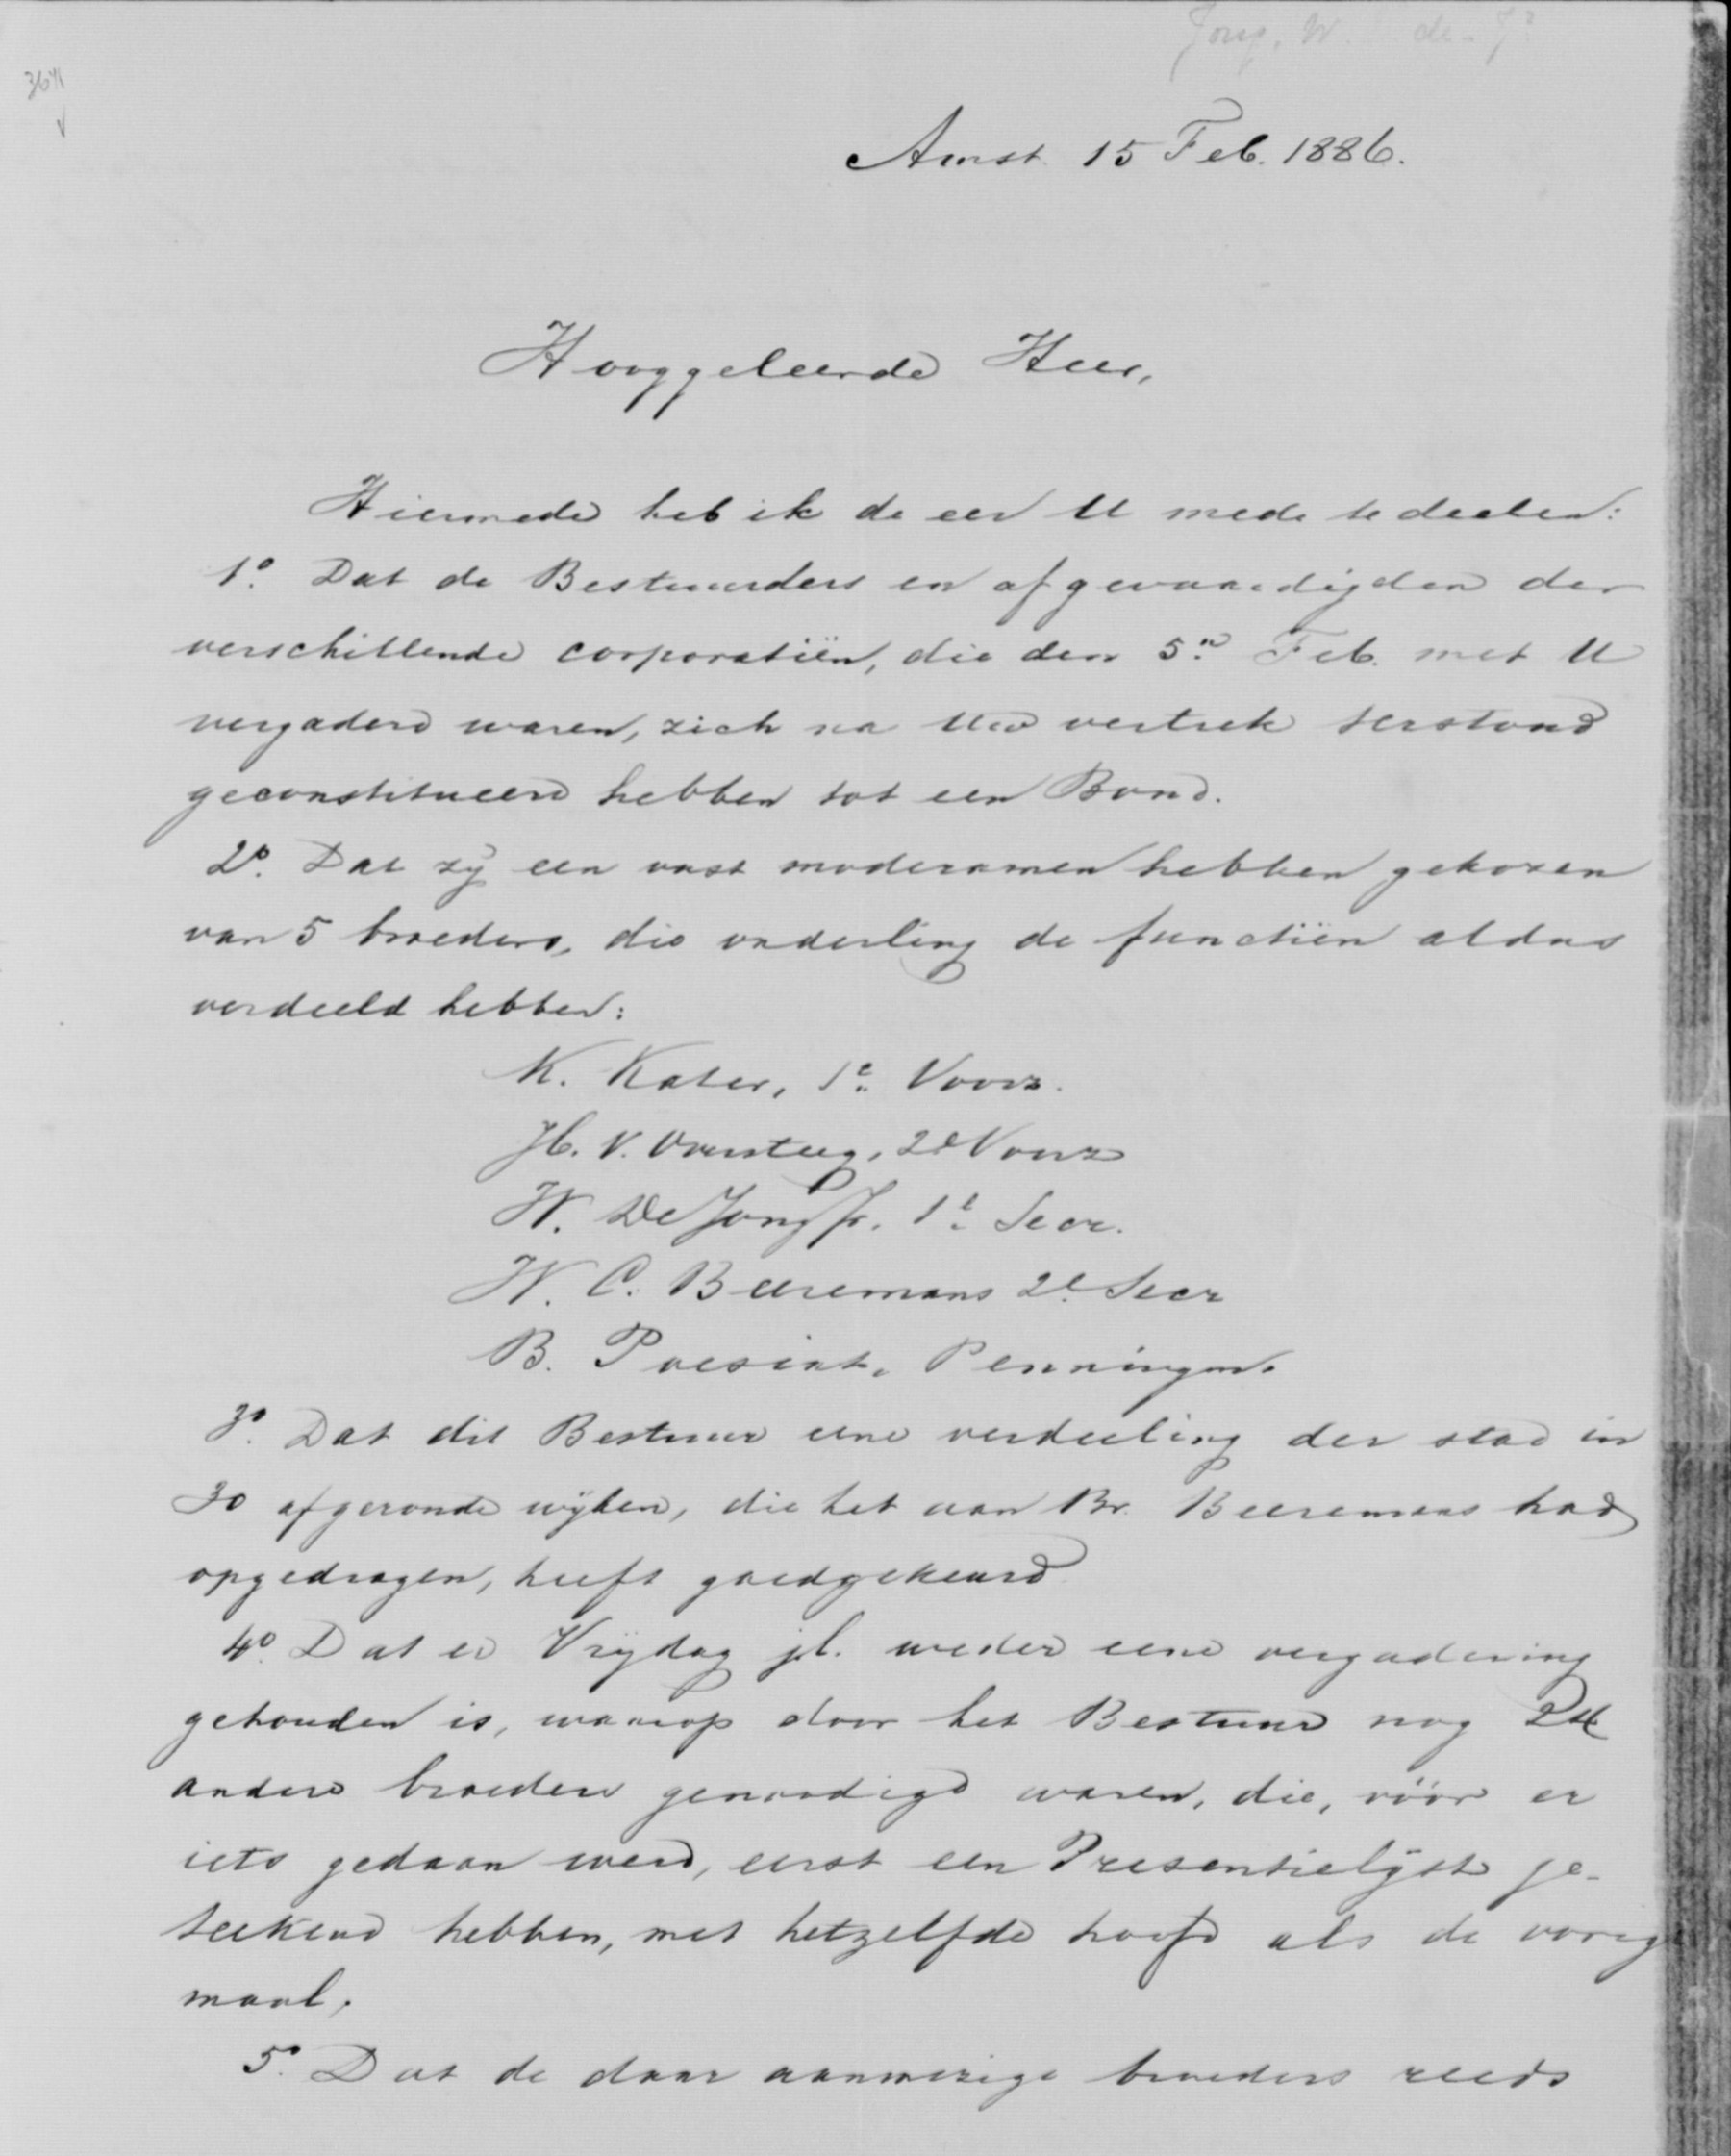 Jong, W. de Jr
3641
Amst. 15 Feb. 1886.
Hooggeleerde Heer,
Hiermede heb ik de eer U mede te deelen:
1o. Dat de Bestuurders en afgevaardigden der
verschillende corporatiën, die den 5n Feb. met U
vergaderd waren, zich na Uw vertrek terstond
geconstitueerd hebben tot een Bond.
2o. Dat zij een vast moderamen hebben gekozen
van 5 broeders, die onderling de functiën aldus
verdeeld hebben:
K. Kater, 1e Voorz.
H. V. Oversteeg, 2e Voorz
W. De Jong Jr. 1e Secr.
W. C. Beeremans 2e Secr
B. Poesiat, Penningm.
3o. Dat dit Bestuur eene verdeeling der stad in
30 afgeronde wijken, die het aan Br. Beeremans had
opgedragen, heeft goedgekeurd
4o. Dat er Vrijdag jl. weder eene vergadering
gehouden is, waarop door het Bestuur nog 24
andere broeders genoodigd waren, die, vóór er
iets gedaan werd, eerst een Presentielijst ge-
teekend hebben, met hetzelfde hoofd als de vorige
maal.
5o. Dat de daar aanwezige broeders reeds